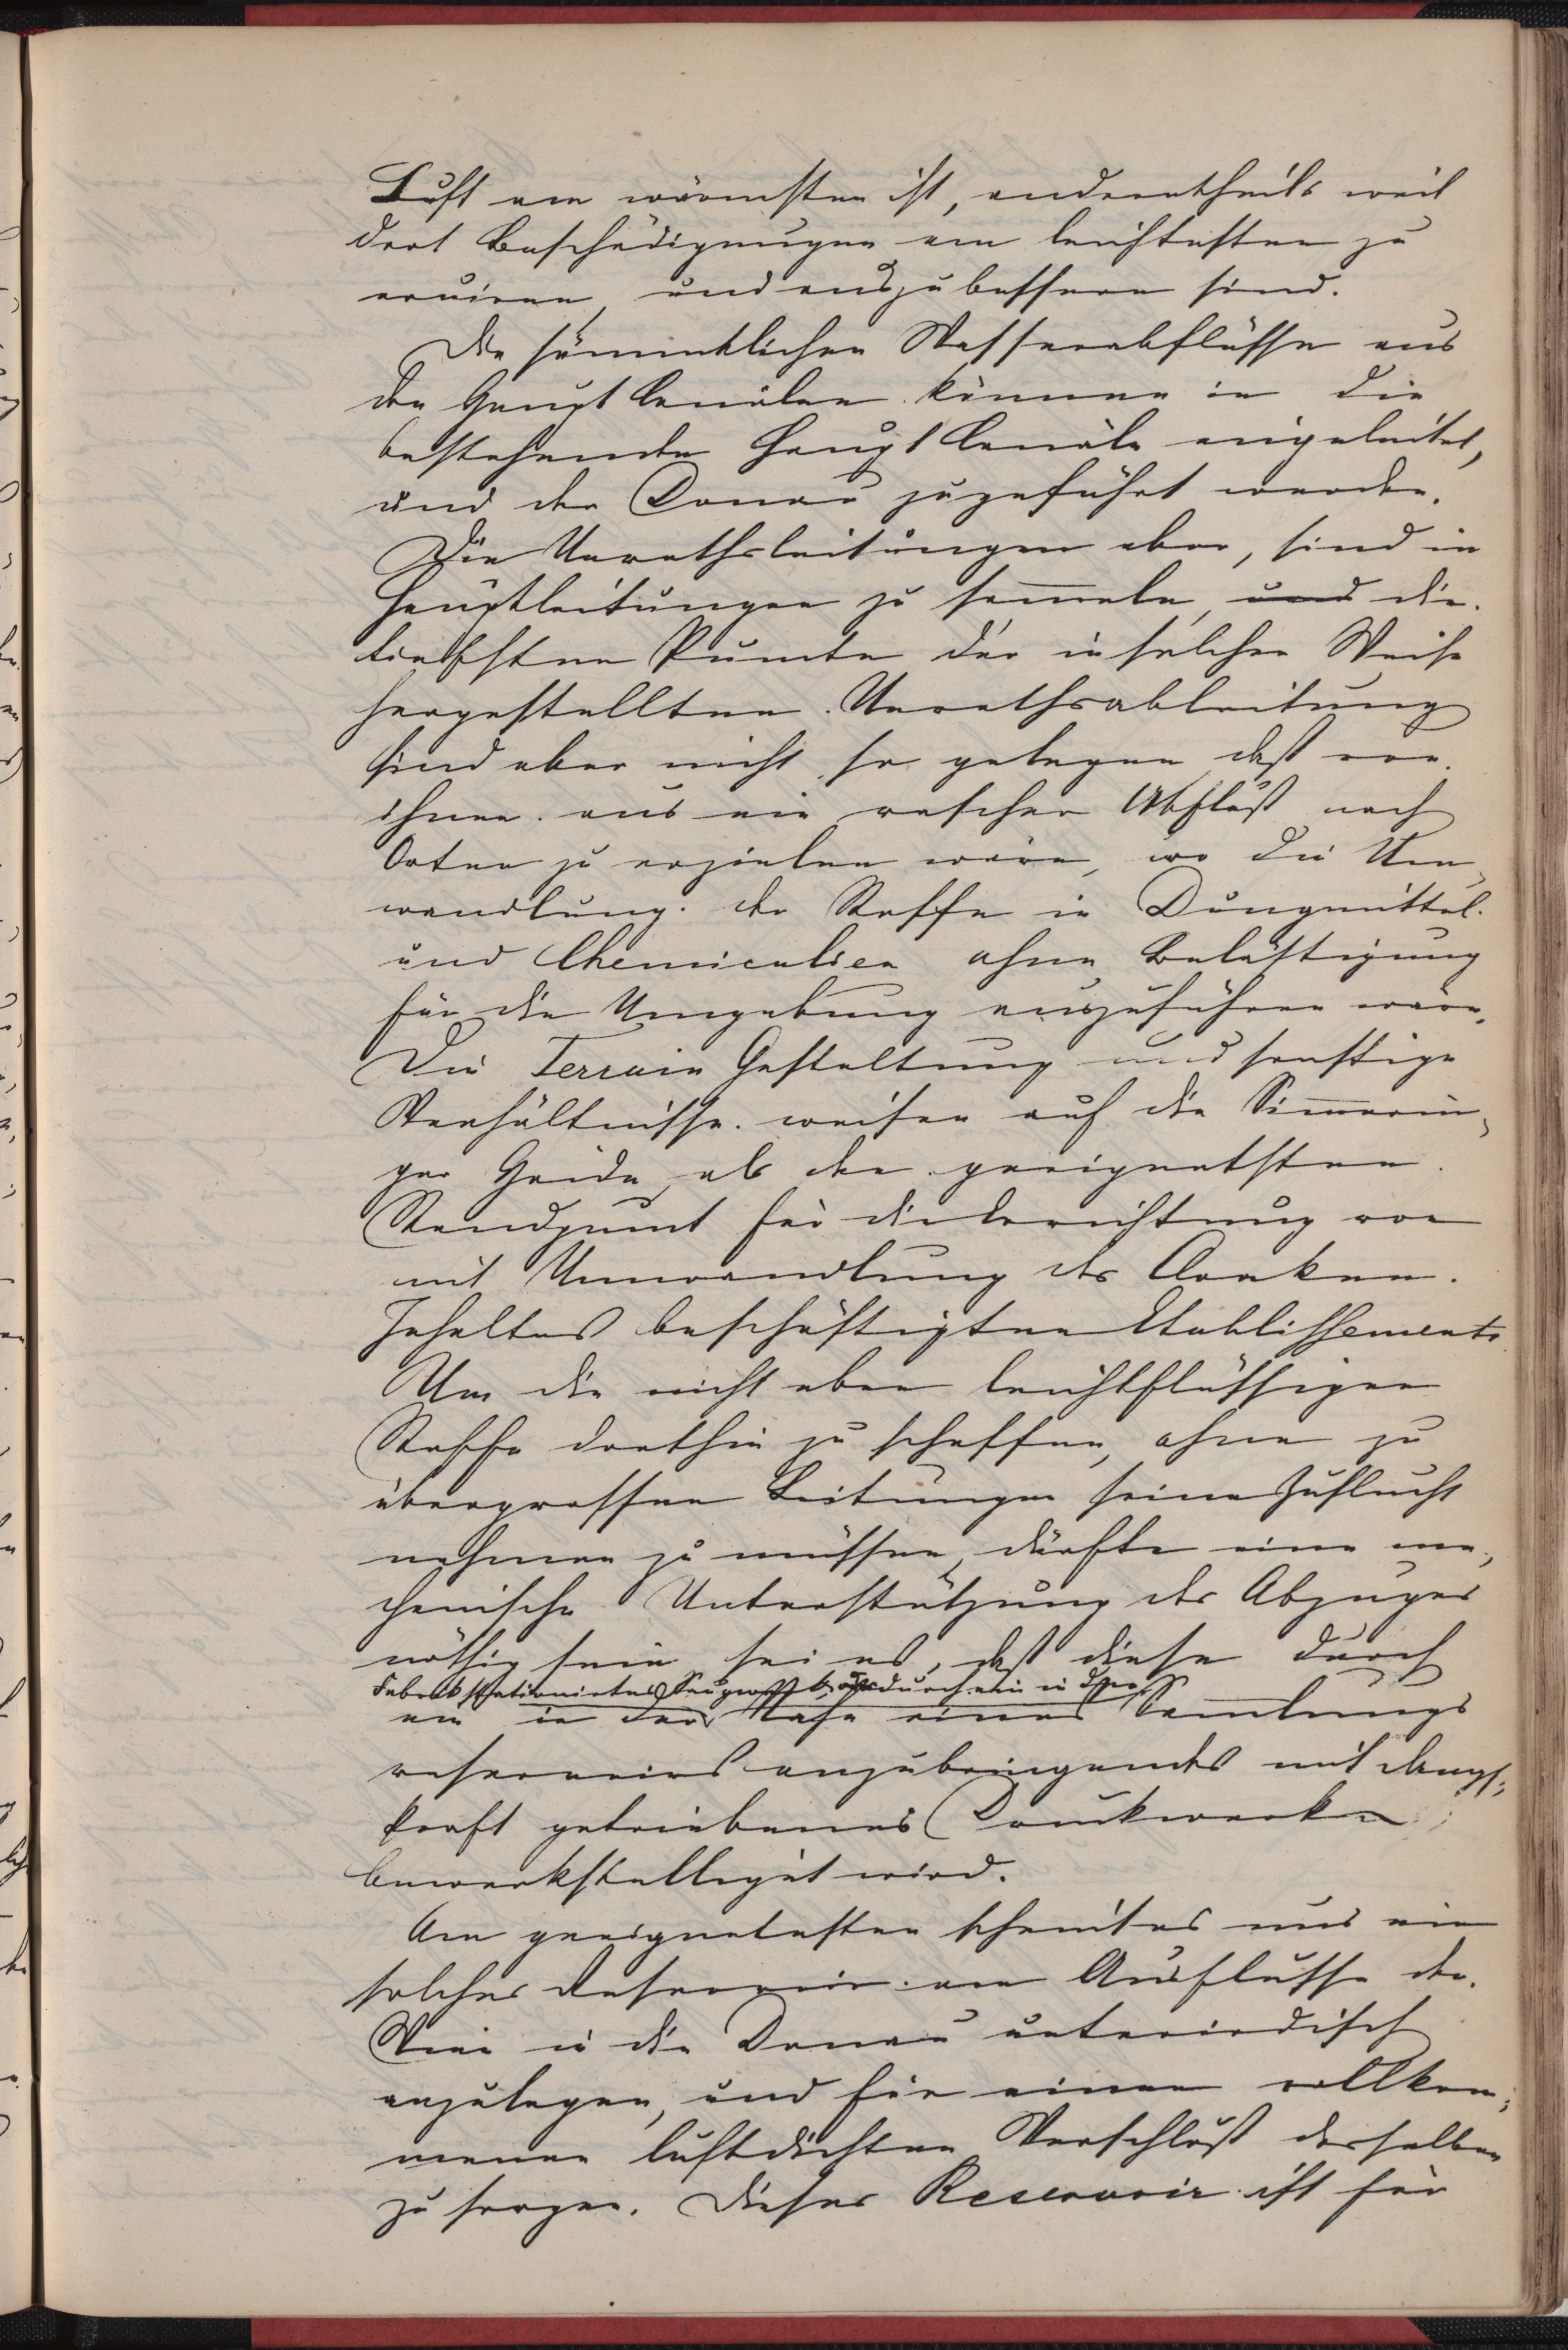 Luft am wärmsten ist, anderntheils weil
dort Beschädigungen am leichtesten zu
eruiren, und auszubessern sind.
Die sämmtlichen Wasserabflüsse aus
den Haupt Canälen können in die
bestehenden Haupt Canäle eingeleitet,
und der Donau zugeführt werden.
Die Unrathsleitungen aber, sind in
Hauptleitungen zu sammeln, die
tiefsten Puncte der in solcher Weise
hergestellten Unrathsableitung
sind aber nicht so gelegen, daß von
ihnen aus ein rascher Abfluß nach
Orten zu erzielen wäre, wo die Um-
wandlung der Stoffe in Dungmittel
und Chemicalien ohne Belästigung
für die Umgebung auszuführen wäre.
Die Terrain Gestaltung und sonstige
Verhältnisse weisen auf die Simmerin-
ger Haide, als den geeignetsten
Standpunct für die Errichtung von
mit Umwandlung des Cloaken
Inhaltes beschäftigten Etablissements.
Um die nicht eben leichtflüssigen
Stoffe dorthin zu schaffen, ohne zu
übergrossen Leitungen seine Zuflucht
nehmen zu müssen, dürfte eine me-
chanische Unterstützung des Abzuges
nöthig sein, sei es, daß diese durch
stationirtes Saugwerk, oder durch ein in der
ein in der Nähe eines Samlungs
reservoirs anzubringendes mit Dampf-
kraft getriebenes Druckwerk
bewerkstelliget wird.
Am geeignetesten scheint es uns ein
solches Reservoir am Ausflusse der
Wien in die Donau unterirdisch
anzulegen, und für einen vollkom-
menen luftdichten Verschluß desselben
zu sorgen. Dieses Reservoir ist für